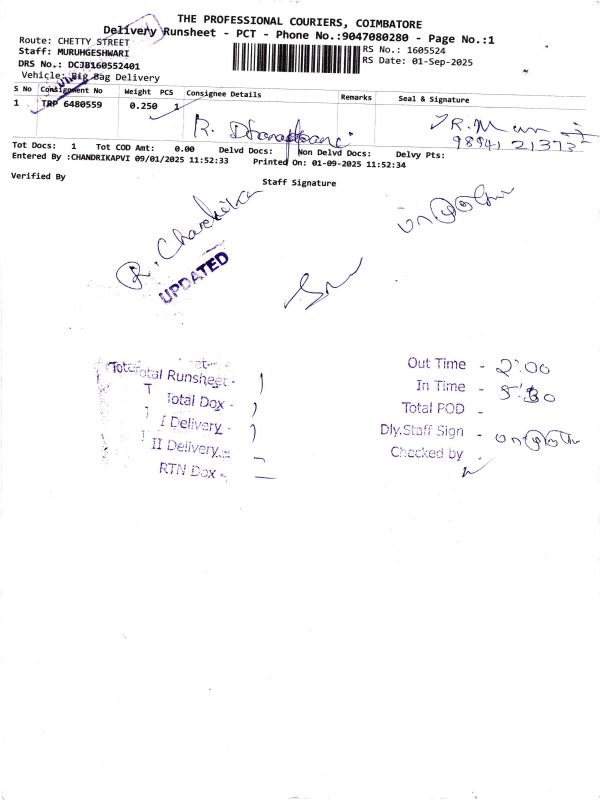 THE PROFESSIONAL COURIERS, COIMBATORE
Delivery Runsheet - PCT - Phone No.:9047080280 - Page No.:1
Route: CHETTY STREET
RS No.: 1605524
Staff: MURUHGESHWARI
RS Date: 01-Sep-2025
DRS No.: DCJB160552401
Vehicle: Big Bag Delivery
S No Consignment No Weight PCS Consignee Details Remarks Seal & Signature
1 TRP 6480559 0.250 1
R.
R.
Tot Docs: 1 Tot COD Amt: 0.00 Delvd Docs: Non Delvd Docs: Delvy Pts:
Entered By :CHANDRIKAPVI 09/01/2025 11:52:33 Printed On: 01-09-2025 11:52:34
Verified By Staff Signature
R. Chandrika
UPDATED
Total Runsheet - 1
Total Dox - 1
I Delivery - 1
II Delivery -
RTN Dox -
Out Time - 2:00
In Time - 5:30
Total POD -
Dly.Staff Sign -
Checked by -